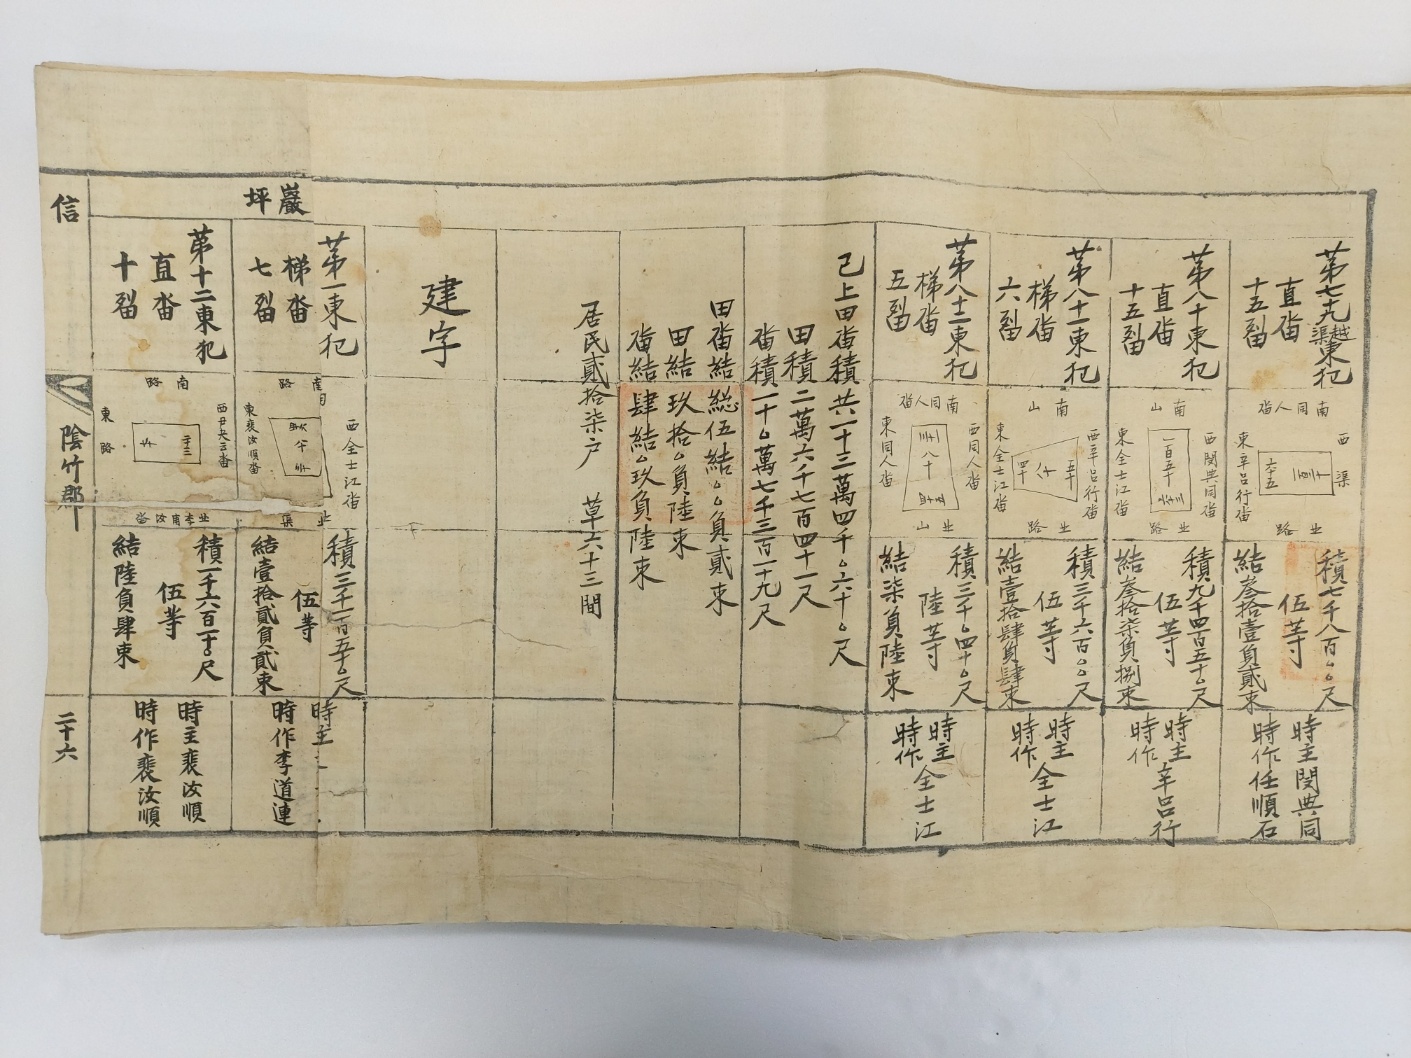 第七十九越渠東犯
直畓
十五㽝
南同人畓
西渠
東辛呂行畓
北路
積七千八百００尺
伍等
結叄拾壹負貳束
時主閔典同
時作任順石
第八十東犯
直畓
十五㽝
南山
西閔典同畓
東全士江畓
北路
積九千四百五十０尺
伍等
結叄拾柒負捌束
時主
時作辛呂行
第八十一東犯
梯畓
六㽝
南山
西辛呂行畓
東全士江畓
北路
積三千六百００尺
伍等
結壹拾肆負肆束
時主
時作全士江
第八十二東犯
梯畓
五㽝
南同人畓
西同人畓
東同人畓
北山
積三千０四十０尺
陸等
結柒負陸束
時主
時作全士江
已上田畓積共一十三萬四千０六十０尺
田積二萬六千七百四十一尺
畓積一十０萬七千三百一十九尺
田畓結総伍結００負貳束
田結玖拾０負陸束
畓結肆結０玖負陸束
居民貳拾柒戶 草六十三間
建字
巖坪
第一東犯
梯畓
七㽝
南路
西全士江畓
東裵汝順畓
北渠
積三千一百五十０尺
伍等
結壹拾貳負貳束
時主
時作李道連
第十二東犯
直畓
十㽝
南路
東路
積一千六百一十０尺
伍等
結陸負肆束
時主裵汝順
時作裵汝順
信
陰竹郡
二十六